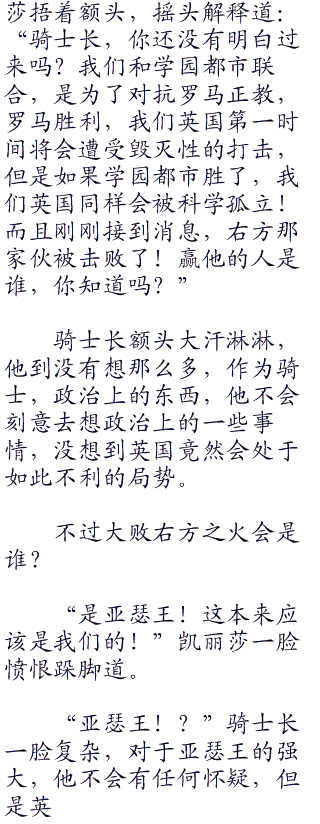 莎捂着额头，摇头解释道：
“骑士长，你还没有明白过
来吗？我们和学园都市联
合，是为了对抗罗马正教，
罗马胜利，我们英国第一时
间将会遭受毁灭性的打击，
但是如果学园都市胜了，我
们英国同样会被科学孤立！
而且刚刚接到消息，右方那
家伙被击败了！赢他的人是
谁，你知道吗？”
骑士长额头大汗淋淋，
他到没有想那么多，作为骑
士，政治上的东西，他不会
刻意去想政治上的一些事
情，没想到英国竟然会处于
如此不利的局势。
不过大败右方之火会是
谁？
“是亚瑟王！这本来应
该是我们的！”凯丽莎一脸
愤恨跺脚道。
“亚瑟王！？”骑士长
一脸复杂，对于亚瑟王的强
大，他不会有任何怀疑，但
是英